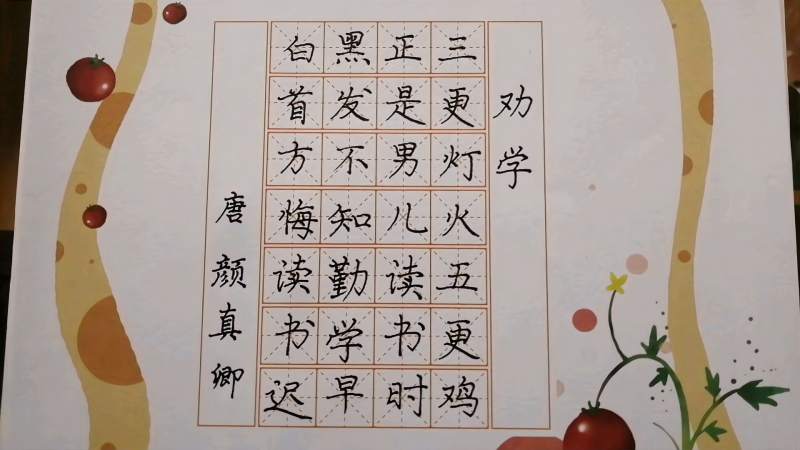 劝学
三更灯火五更鸡
正是男儿读书时
黑发不知勤学早
白首方悔读书迟
唐颜真卿